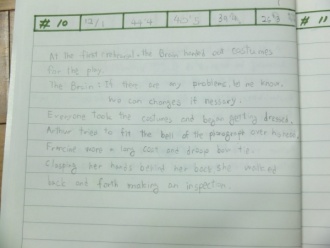 # 10 12/1 # 11
At the first rehearsal, the Brain handed out costumes
for the play.
The Brain: If there are any problems, let me know,
We can changes if nessary.
Everyone took the costumes and began getting dressed,
Arthur tried to fix the bell of the phonograph over his head.
Francine wore a long coat and droopy
Clasping her hands behind her back she walked
back and forth making an inspection.